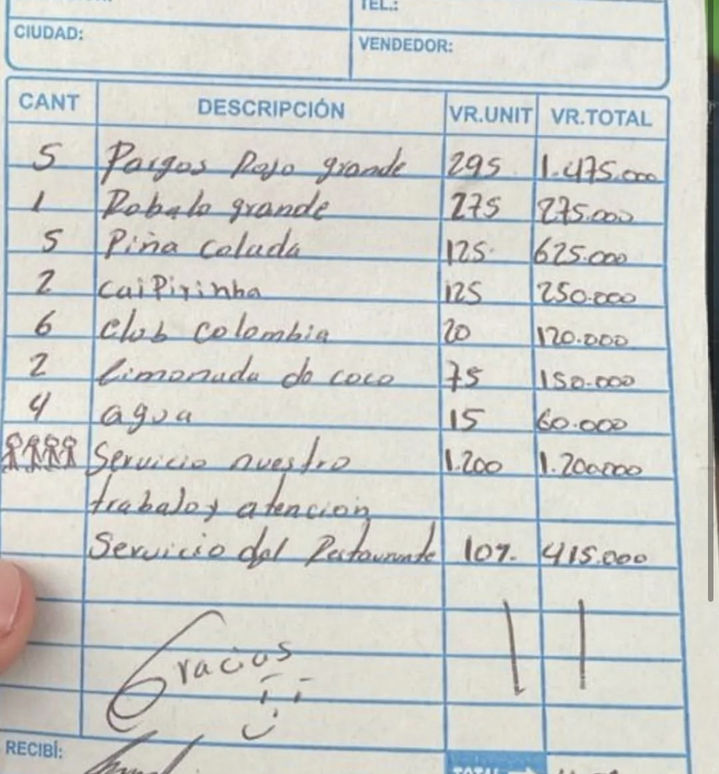 TEL.:
CIUDAD:
VENDEDOR:
CANT DESCRIPCIÓN VR.UNIT VR.TOTAL
5 Pargos Rojo grande 295 1.475.000
1 Robalo grande 275 275.000
5 Piña colada 125 625.000
2 caiPirinha 125 250.000
6 club colombia 20 120.000
2 limonada do coco 75 150.000
4 agua 15 60.000
Servicio nuestro 1.200 1.200.000
trabalo y atencion
Servicio del Restaurante 10% 415.000
Gracias
RECIBÍ: